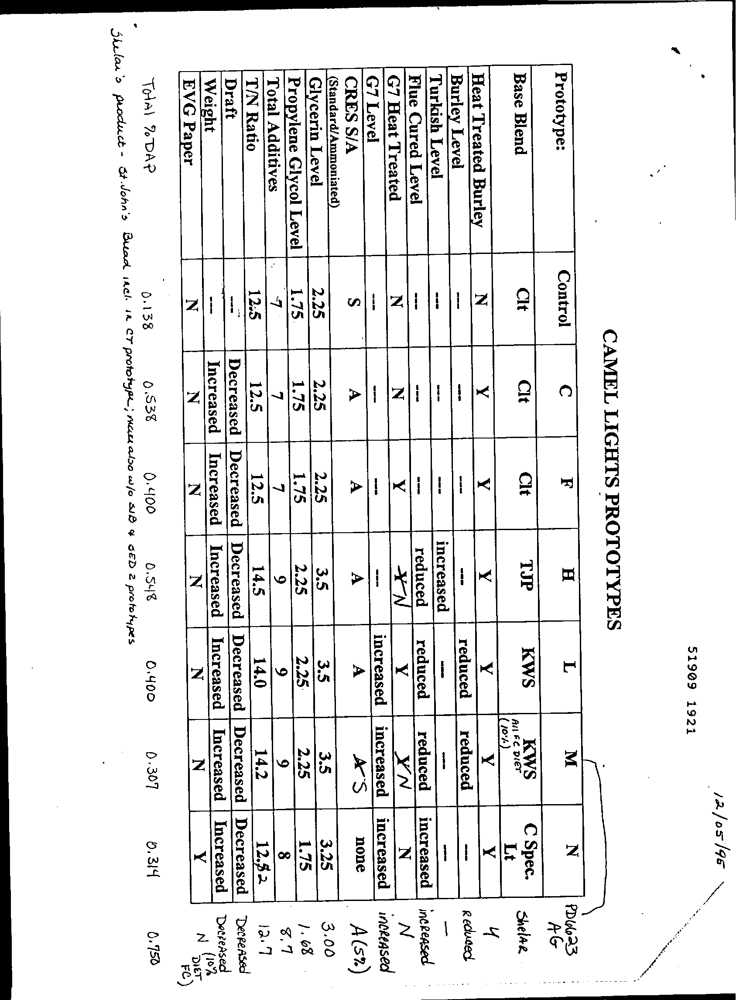 12/05/95
51909 1921
CAMEL LIGHTS PROTOTYPES
Prototype: Control C F H L M N PD6623 AG
Base Blend Clt Clt Clt TJP KWS KWS All FC DIET (10%) C Spec. Lt Shelar
Heat Treated Burley N Y Y Y Y Y Y Y
Burley Level --- --- --- --- reduced reduced --- Reduced
Turkish Level --- --- --- increased --- --- --- —
Flue Cured Level --- --- --- reduced reduced reduced increased increased
G7 Heat Treated N N Y Y N Y Y N N N
G7 Level --- --- --- --- increased increased increased increased
CRES S/A S A A A A A S none A (5%)
(Standard/Ammoniated)
Glycerin Level 2.25 2.25 2.25 3.5 3.5 3.5 3.25 3.00
Propylene Glycol Level 1.75 1.75 1.75 2.25 2.25 2.25 1.75 1.68
Total Additives 7 7 7 9 9 9 8 8.7
T/N Ratio 12.5 12.5 12.5 14.5 14.0 14.2 12.2 12.7
Draft --- Decreased Decreased Decreased Decreased Decreased Decreased Decreased
Weight --- Increased Increased Increased Increased Increased Increased Decreased
EVG Paper N N N N N N Y N (10% DIET FC)
Total % DAP 0.138 0.538 0.400 0.548 0.400 0.307 0.314 0.750
Shelar's product - St. John's Bread incl. in CT prototype; also w/o SJB & prototypes